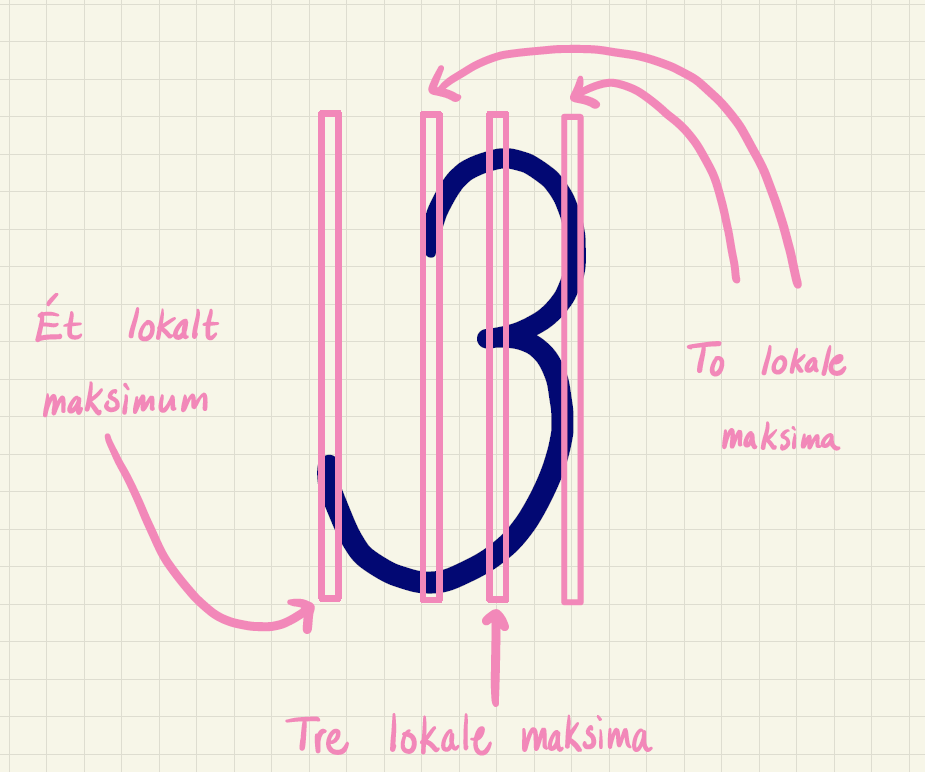 Ét lokalt
maksimum
To lokale
maksima
Tre lokale maksima